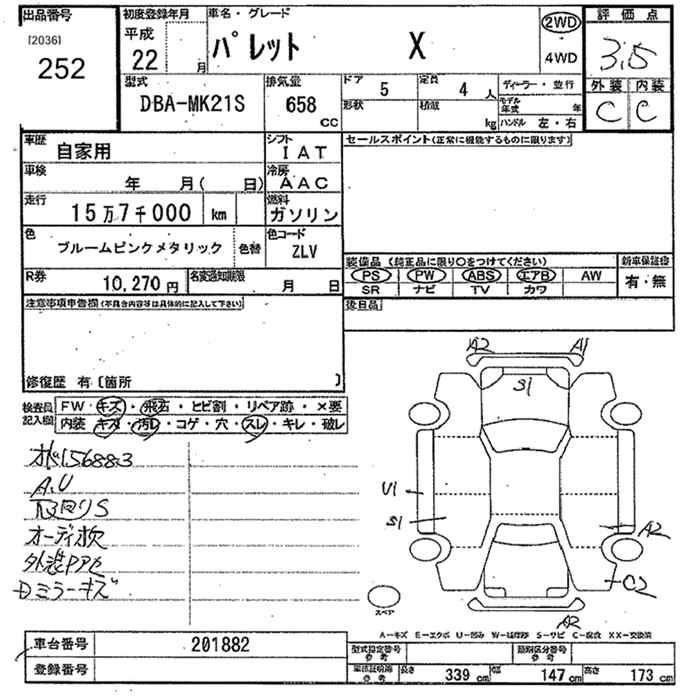 出品番号
[2036]
252
初度登録年月
平成
22 月
車名・グレード
パレット X
2WD
4WD
評価点
3.5
外装 内装
C C
型式
DBA-MK21S
排気量
658
cc
ドア 5
形状
定員 4 人
積載 kg
ディーラー・並行
モデル年式 年
ハンドル 左・右
車歴
自家用
シフト
IAT
セールスポイント(正常に機能するものに限ります)
車検
年 月( 日)
冷房
AAC
走行
15万7千000 km
燃料
ガソリン
色
ブルームピンクメタリック
色替
色コード
ZLV
装備品 (純正品に限り○をつけてください)
新車保証書
PS PW ABS エアB AW
SR ナビ TV カワ
有・無
R券
10,270円
名変通知期限
月 日
後日品
注意事項申告欄(不具合内容等は具体的に記入して下さい)
修復歴 有〔箇所 〕
検査員記入欄
FW・キズ・飛石・ヒビ割・リペア跡・×要
内装・キズ・汚レ・コゲ・穴・スレ・キレ・破レ
オド156883
A.U
取回りS
オーディオ欠
外装PPセ
Dミラーキズ
A2 A1
S1
U1
S1
A2
C2
A2
スペア
A-キズ E-エクボ U-凹み W-補修跡 S-サビ C-腐食 XX-交換済
車台番号
201882
登録番号
型式指定番号
参考
類別区分番号
参考
車検証明等
参考
長さ 339 cm 幅 147 cm 高さ 173 cm